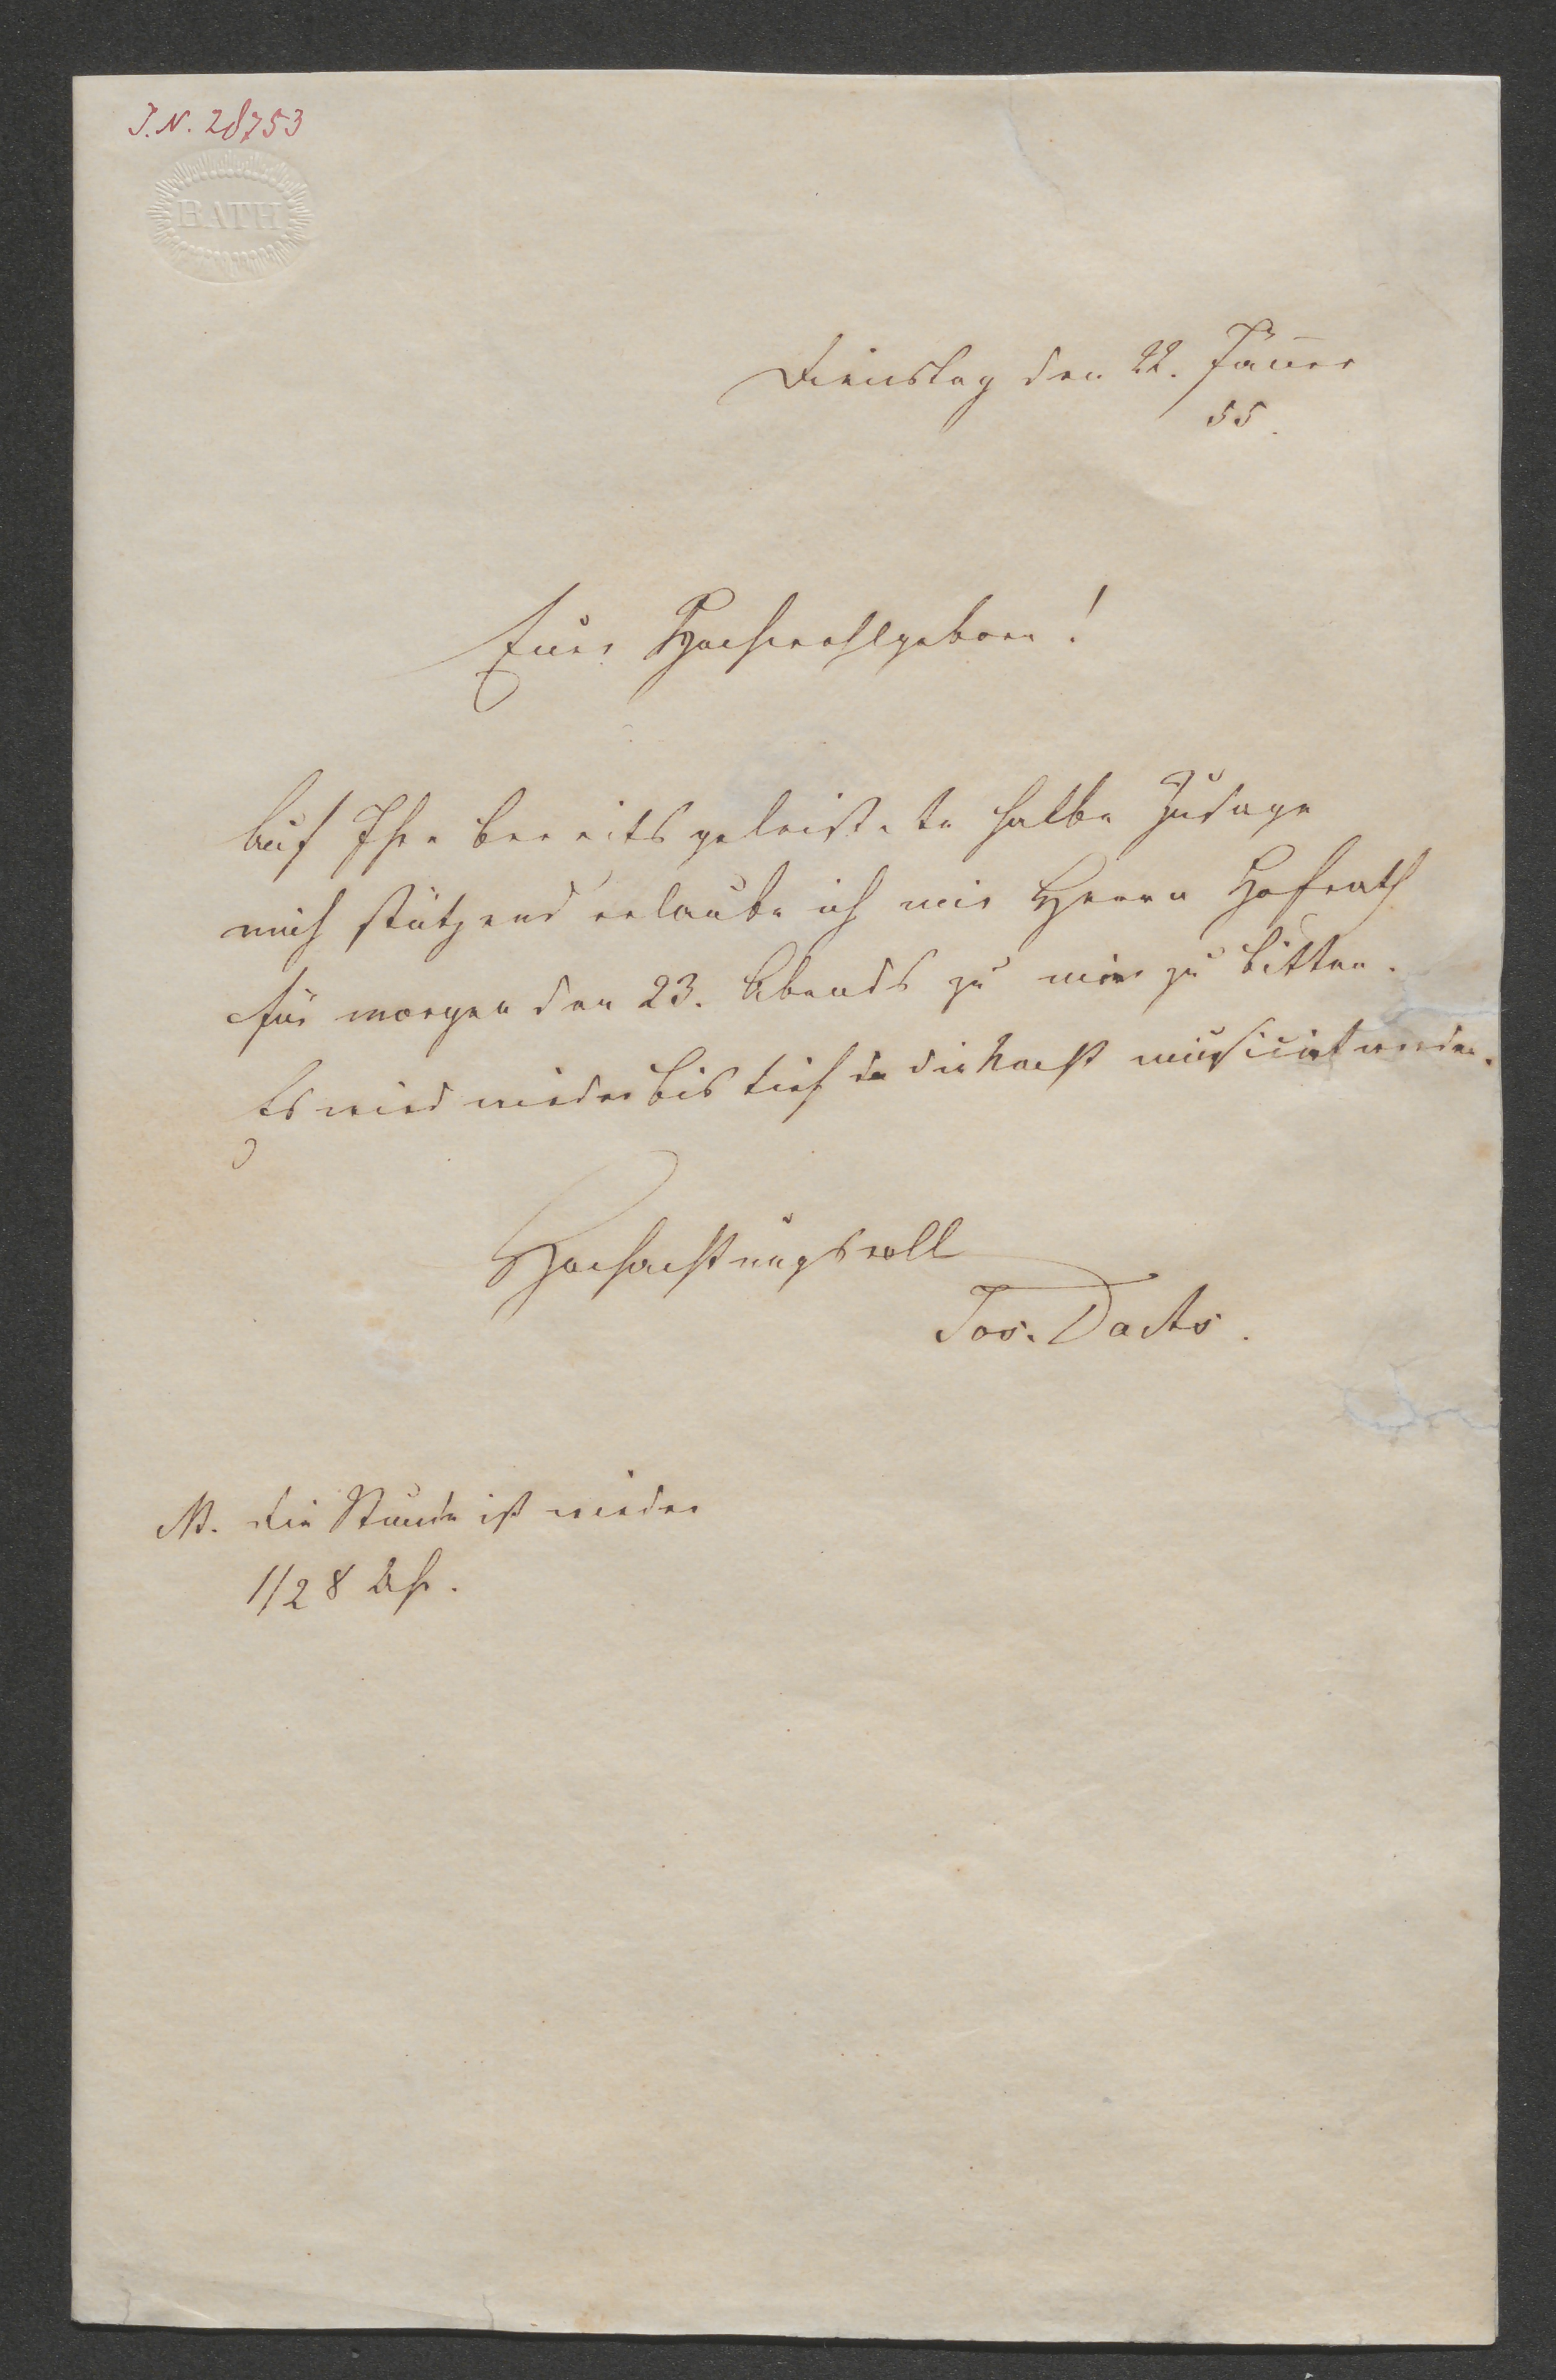 J.N. 28753
BATH
Dienstag den 22. Jäner
55.
Euer Hochwohlgeboren!
Auf Ihre bereits geleistete halbe Zusage
mich stützend erlaube ich mir Herrn Hofrath
für morgen den 23. Abends zu mir zu bitten.
Es wird wieder bis tief in die Nacht musicirt werden.
Hochachtungsvoll
Jos. Dachs.
NB. Die Stunde ist wieder
1/2 8 Uhr.